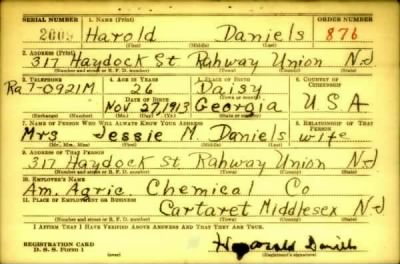 SERIAL NUMBER 1. NAME (Print) ORDER NUMBER
2009 Harold Daniels 876
(First) (Middle) (Last)
2. ADDRESS (Print)
317 Haydock St Rahway Union N.J
(Number and street or R. F. D. number) (Town) (County) (State)
3. TELEPHONE 4. AGE IN YEARS 5. PLACE OF BIRTH 6. COUNTRY OF CITIZENSHIP
Ra 7-0921M 26 Daisy
DATE OF BIRTH (Town or county)
Nov 27, 1913 Georgia U S A
(Exchange) (Number) (Mo.) (Day) (Yr.) (State or country)
7. NAME OF PERSON WHO WILL ALWAYS KNOW YOUR ADDRESS 8. RELATIONSHIP OF THAT PERSON
Mrs Jessie M. Daniels wife
(Mr., Mrs., Miss) (First) (Middle) (Last)
9. ADDRESS OF THAT PERSON
317 Haydock St Rahway Union N.J
(Number and street or R. F. D. number) (Town) (County) (State)
10. EMPLOYER'S NAME
Am. Agric. Chemical Co
11. PLACE OF EMPLOYMENT OR BUSINESS
Cartaret Middlesex N.J
(Number and street or R. F. D. number) (Town) (County) (State)
I AFFIRM THAT I HAVE VERIFIED ABOVE ANSWERS AND THAT THEY ARE TRUE.
REGISTRATION CARD
D. S. S. Form 1 Harold Daniels
(Registrant's signature)